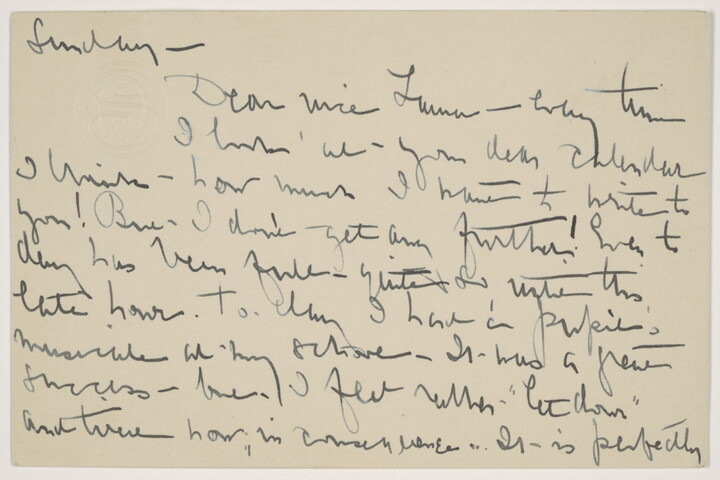 Sunday —
Dear nice Lamar — Every time
I look at — your dear calendar
I think — how much I want to write to
you! But — I don't get any further! Even to
day has been full — quite so until this
late hour. To-day I had a pupil's
musicale at my school — It was a great
success — but I feel rather "let down"
and tired now, in consequence.. It is perfectly